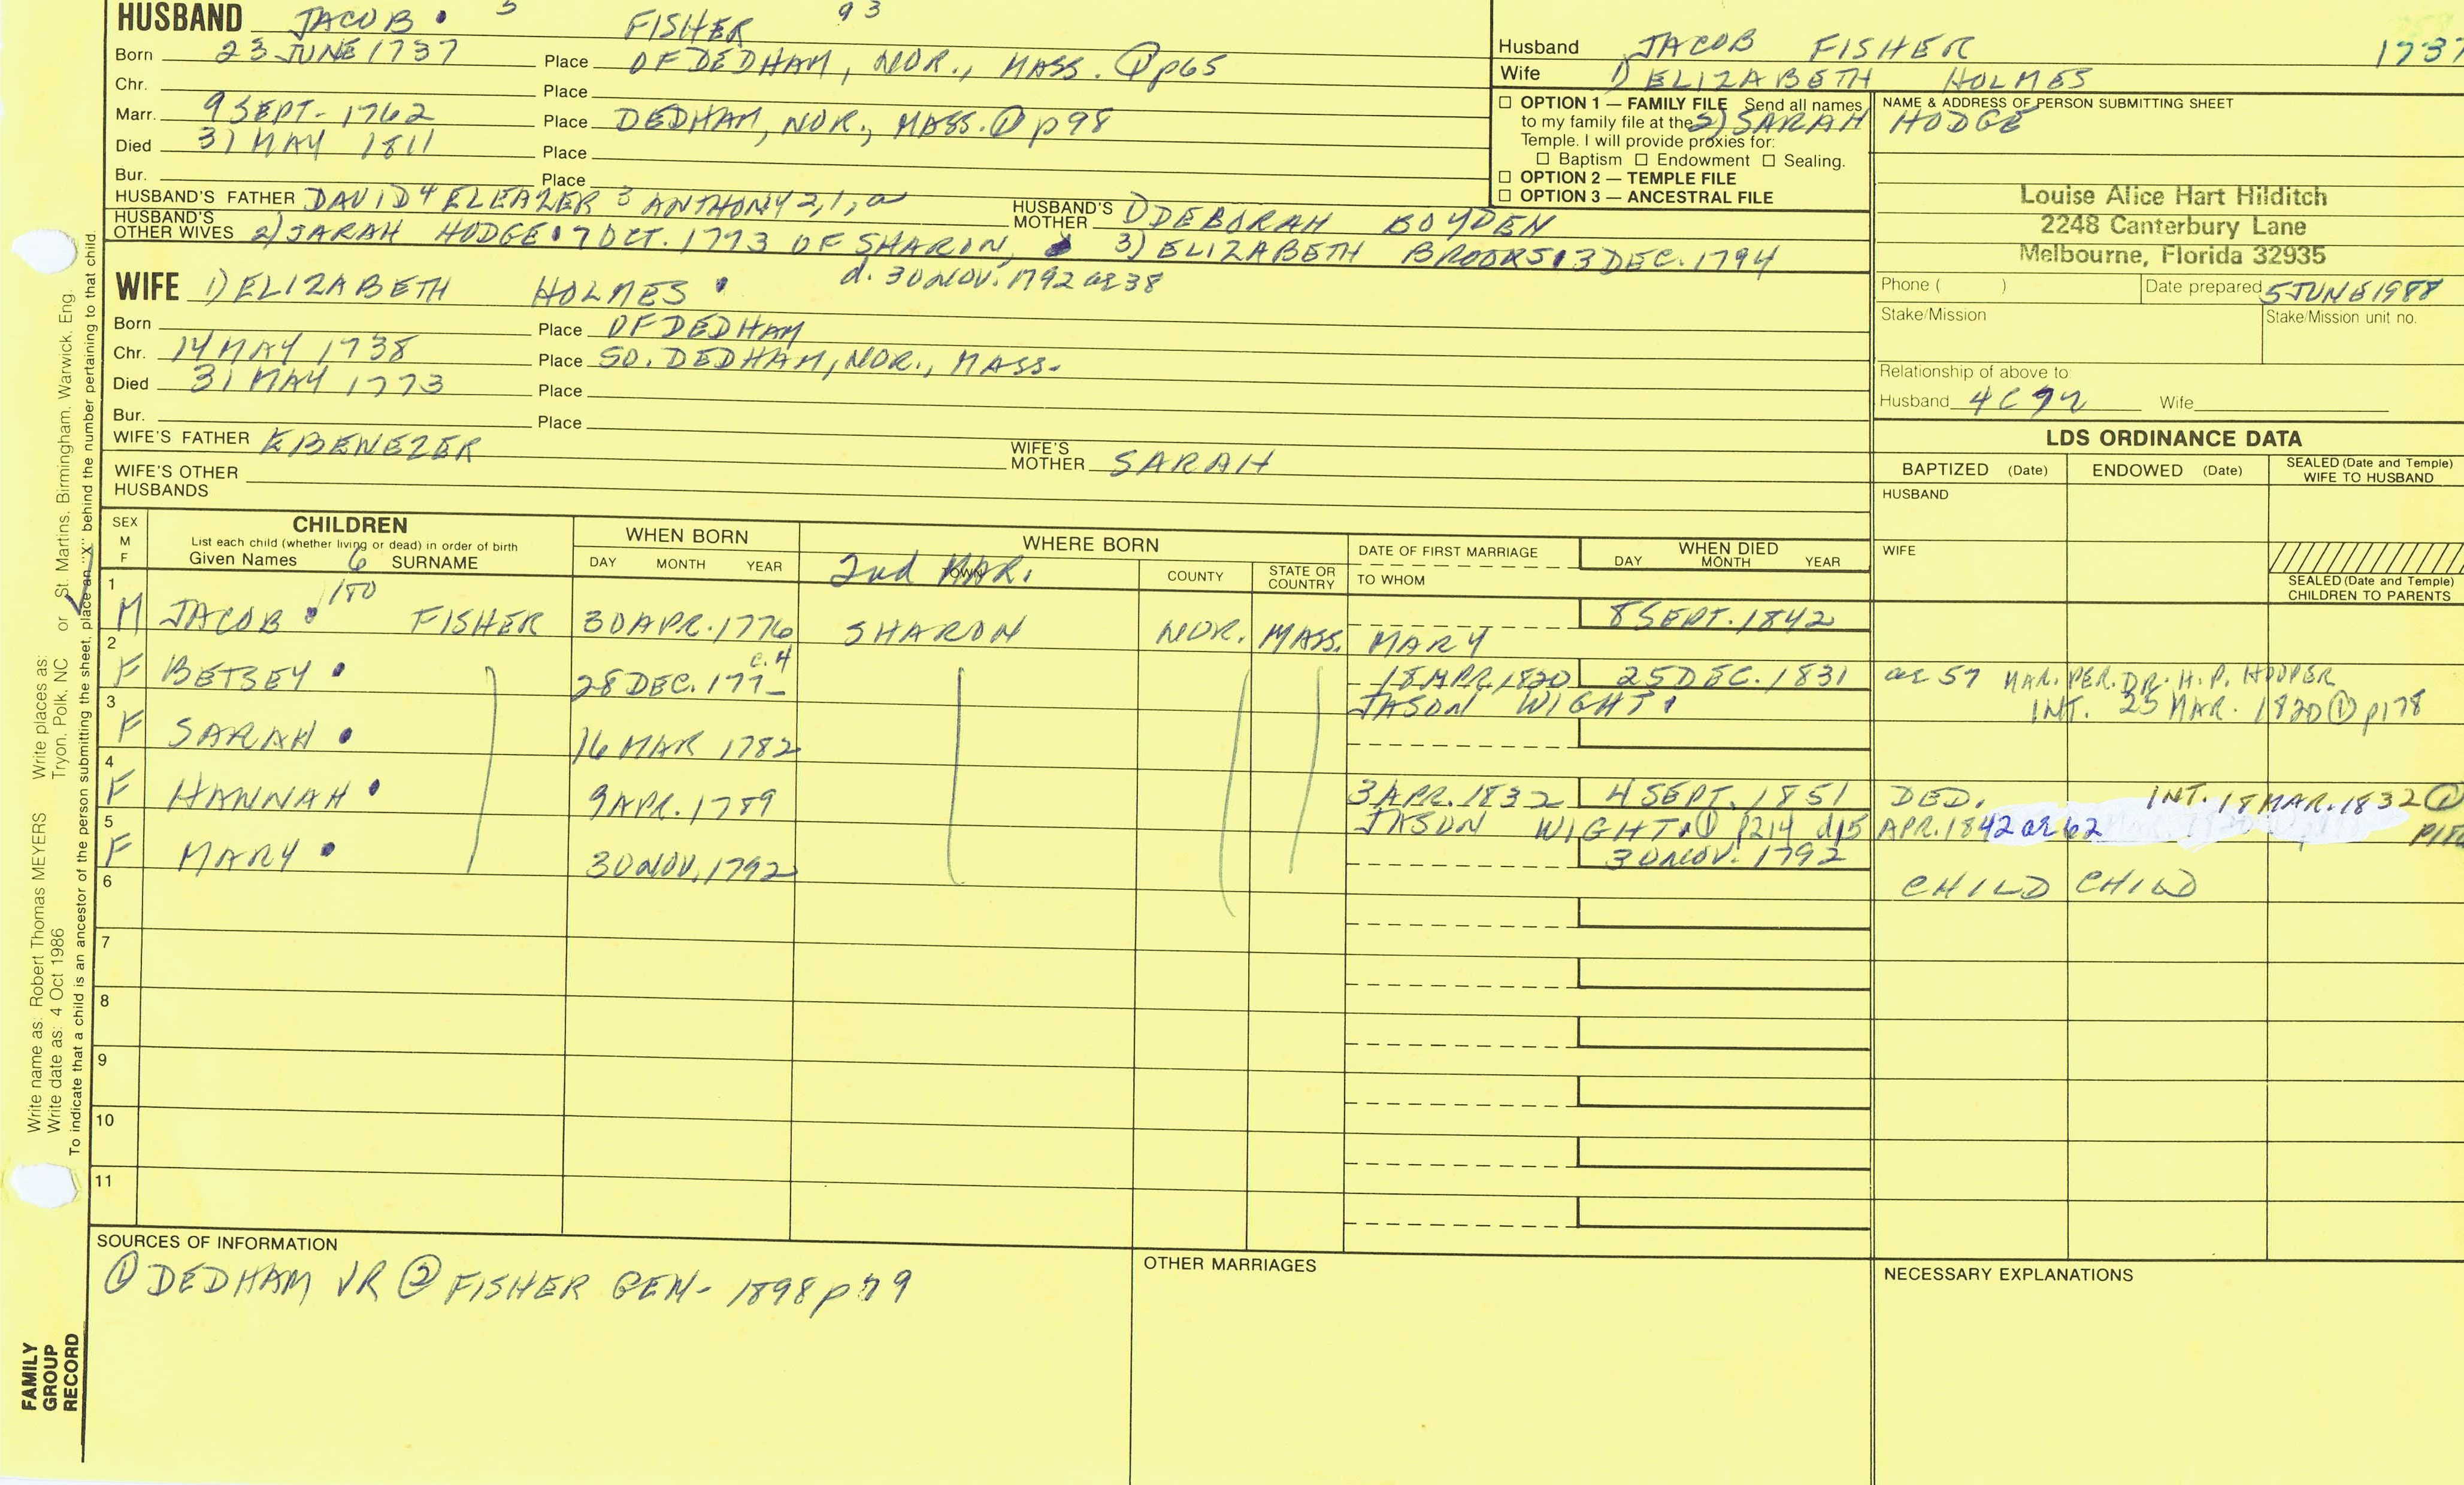 HUSBAND JACOB • 5 FISHER 93
Born 23 JUNE 1737 Place OF DEDHAM, NOR., MASS. ① p65
Chr. Place
Marr. 9 SEPT. 1762 Place DEDHAM, NOR., MASS. ① p98
Died 31 MAY 1811 Place
Bur. Place
HUSBAND'S FATHER DAVID 4 ELEAZER 3 ANTHONY 2,1, a HUSBAND'S MOTHER 1) DEBORAH BOYDEN
HUSBAND'S OTHER WIVES 2) SARAH HODGE • 7 OCT. 1773 OF SHARON, 3) ELIZABETH BROOKS • 3 DEC. 1794
d. 30 NOV. 1792 ae 38
WIFE 1) ELIZABETH HOLMES •
Born Place OF DEDHAM
Chr. 14 MAY 1738 Place SO. DEDHAM, NOR., MASS.
Died 31 MAY 1773 Place
Bur. Place
WIFE'S FATHER EBENEZER WIFE'S MOTHER SARAH
WIFE'S OTHER HUSBANDS
Husband JACOB FISHER 1737
Wife 1) ELIZABETH HOLMES
☐ OPTION 1 — FAMILY FILE Send all names
to my family file at the 2) SARAH HODGE
Temple. I will provide proxies for:
☐ Baptism ☐ Endowment ☐ Sealing.
☐ OPTION 2 — TEMPLE FILE
☐ OPTION 3 — ANCESTRAL FILE
NAME & ADDRESS OF PERSON SUBMITTING SHEET
Louise Alice Hart Hilditch
2248 Canterbury Lane
Melbourne, Florida 32935
Phone ( ) Date prepared 5 JUNE 1988
Stake/Mission Stake/Mission unit no.
Relationship of above to:
Husband 4C 7R Wife
LDS ORDINANCE DATA
BAPTIZED (Date) ENDOWED (Date) SEALED (Date and Temple) WIFE TO HUSBAND
HUSBAND
WIFE
SEALED (Date and Temple) CHILDREN TO PARENTS
SEX M F CHILDREN
List each child (whether living or dead) in order of birth
Given Names 6 SURNAME
WHEN BORN DAY MONTH YEAR
WHERE BORN 2nd MAR. TOWN COUNTY STATE OR COUNTRY
DATE OF FIRST MARRIAGE TO WHOM
WHEN DIED DAY MONTH YEAR
1 M JACOB • 180 FISHER 30 APR. 1776 SHARON NOR. MASS. MARY 8 SEPT. 1842
2 F BETSEY • 28 DEC. 177_ c. 4 18 APR. 1820 25 DEC. 1831 ae 57 MAR. PER. DR. H. P. HOOPER
JASON WIGHT • INT. 25 MAR. 1820 ① p178
3 F SARAH • 16 MAR 1782
4 F HANNAH • 9 APR. 1789 3 APR. 1832 4 SEPT. 1851 DED. INT. 18 MAR. 1832 ①
JASON WIGHT • ① p214 d 15 APR. 1842 ae 62
5 F MARY • 30 NOV. 1792 30 NOV. 1792 CHILD CHILD
6
7
8
9
10
11
SOURCES OF INFORMATION
① DEDHAM VR ② FISHER GEN- 1898 p 79
OTHER MARRIAGES
NECESSARY EXPLANATIONS
Write name as: Robert Thomas MEYERS Write places as: St. Martins, Birmingham, Warwick, Eng.
Write date as: 4 Oct 1986 Tryon, Polk, NC or
To indicate that a child is an ancestor of the person submitting the sheet, place an "X" behind the number pertaining to that child.
FAMILY
GROUP
RECORD